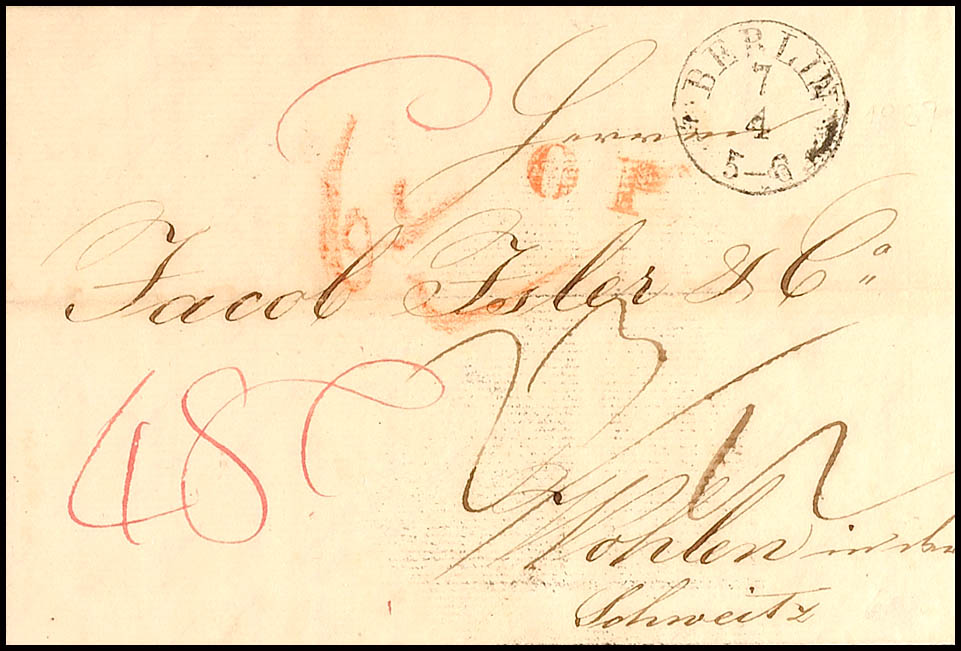 BERLIN
7
4
5-6
Herren
O P
Jacob Isler & Co
48
Wohlen in der
Schweitz